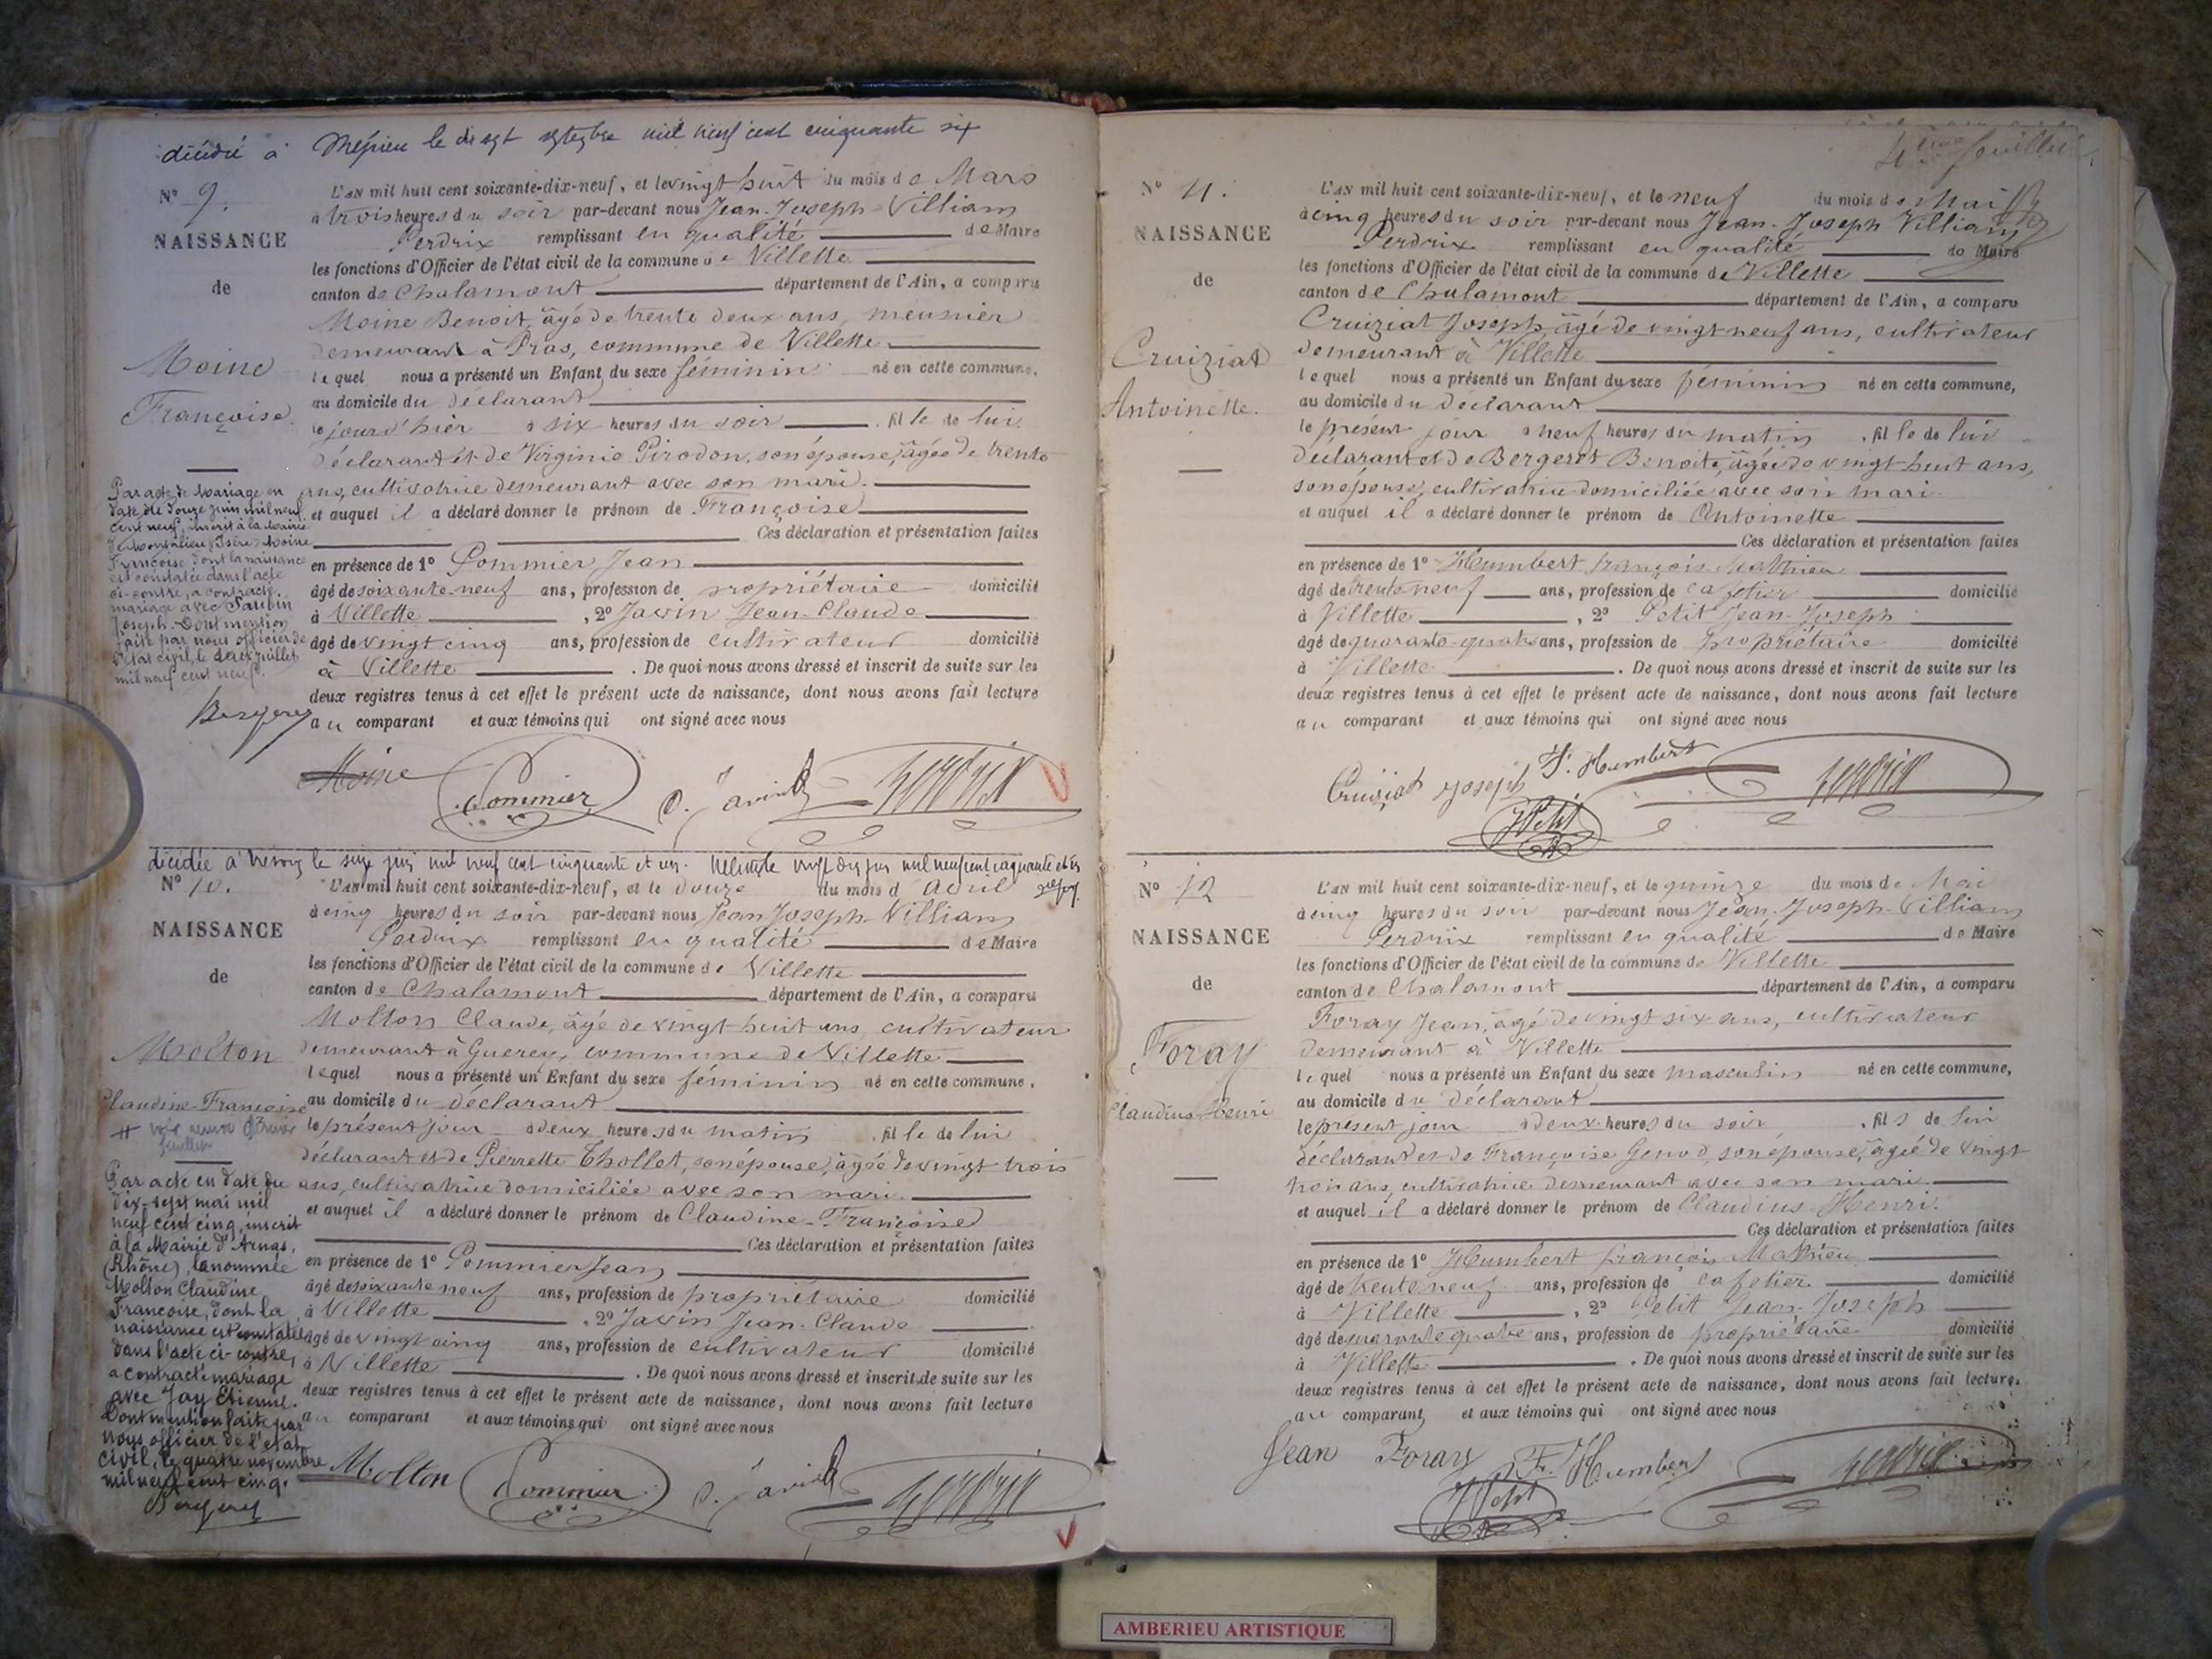 décédé à Mépieu le dix sept septembre mil neuf cent cinquante six
N° 9.
NAISSANCE
de
Moine
Françoise.
L'AN mil huit cent soixante-dix-neuf, et le vingt huit du mois de Mars
à trois heures du soir par-devant nous Jean-Joseph-Villiam
Perdrix remplissant en qualité de Maire
les fonctions d'Officier de l'état civil de la commune de Villette
canton de Chalamont département de l'Ain, a comparu
Moine Benoit, âgé de trente deux ans, meunier
demeurant à Pras, commune de Villette
lequel nous a présenté un Enfant du sexe féminin né en cette commune,
au domicile du déclarant
le jour d'hier à six heures du soir, fille de lui
déclarant et de Virginie Pirodon, son épouse, âgée de trente
ans, cultivatrice demeurant avec son mari.
et auquel il a déclaré donner le prénom de Françoise
Ces déclaration et présentation faites
en présence de 1° Pommier Jean
âgé de soixante neuf ans, profession de propriétaire domicilié
à Villette, 2° Javin Jean-Claude
âgé de vingt cinq ans, profession de cultivateur domicilié
à Villette. De quoi nous avons dressé et inscrit de suite sur les
deux registres tenus à cet effet le présent acte de naissance, dont nous avons fait lecture
au comparant et aux témoins qui ont signé avec nous
Par acte de Mariage en
date du douze juin mil neuf
cent neuf, inscrit à la Mairie
de Montalieu (Isère) Moine
Françoise dont la naissance
est constatée dans l'acte
ci-contre, a contracté
mariage avec
Joseph. Dont mention
faite par nous officier de
l'état civil, le juillet
mil neuf cent neuf.
Moine Pommier C. Javin Perdrix
décédée à le seize juin mil neuf cent cinquante et un.
N° 10.
NAISSANCE
de
Molton
Claudine-Françoise
L'AN mil huit cent soixante-dix-neuf, et le douze du mois d'Avril
à cinq heures du soir par-devant nous Jean Joseph-Villiam
Perdrix remplissant en qualité de Maire
les fonctions d'Officier de l'état civil de la commune de Villette
canton de Chalamont département de l'Ain, a comparu
Molton Claude, âgé de vingt huit ans, cultivateur
demeurant à Guerey, commune de Villette
lequel nous a présenté un Enfant du sexe féminin né en cette commune,
au domicile du déclarant
le présent jour à deux heures du matin, fille de lui
déclarant et de Pierrette Chollet, son épouse, âgée de vingt trois
ans, cultivatrice domiciliée avec son mari.
et auquel il a déclaré donner le prénom de Claudine-Françoise
Ces déclaration et présentation faites
en présence de 1° Pommier Jean
âgé de soixante neuf ans, profession de propriétaire domicilié
à Villette, 2° Javin Jean-Claude
âgé de vingt cinq ans, profession de cultivateur domicilié
à Villette. De quoi nous avons dressé et inscrit de suite sur les
deux registres tenus à cet effet le présent acte de naissance, dont nous avons fait lecture
au comparant et aux témoins qui ont signé avec nous
Par acte en date du
dix-sept mai mil
neuf cent cinq, inscrit
à la Mairie d'Arnas,
(Rhône), la nommée
Molton Claudine
Françoise, dont la
naissance est constatée
dans l'acte ci-contre,
a contracté mariage
avec Jay Etienne.
Dont mention faite par
nous officier de l'état
civil, le quatre novembre
mil neuf cent cinq.
Molton Pommier C. Javin Perdrix
4ème feuillet
N° 11.
NAISSANCE
de
Cruiziat
Antoinette.
L'AN mil huit cent soixante-dix-neuf, et le neuf du mois de Mai
à cinq heures du soir par-devant nous Jean-Joseph Villiam
Perdrix remplissant en qualité de Maire
les fonctions d'Officier de l'état civil de la commune de Villette
canton de Chalamont département de l'Ain, a comparu
Cruiziat Joseph, âgé de vingt neuf ans, cultivateur
demeurant à Villette
lequel nous a présenté un Enfant du sexe féminin né en cette commune,
au domicile du déclarant
le présent jour à neuf heures du matin, fille de lui
déclarant et de Bergeret Benoite, âgée de vingt huit ans,
son épouse, cultivatrice domiciliée avec son mari.
et auquel il a déclaré donner le prénom de Antoinette
Ces déclaration et présentation faites
en présence de 1° Humbert François Mathieu
âgé de trente neuf ans, profession de cafetier domicilié
à Villette, 2° Petit Jean-Joseph
âgé de quarante-quatre ans, profession de propriétaire domicilié
à Villette. De quoi nous avons dressé et inscrit de suite sur les
deux registres tenus à cet effet le présent acte de naissance, dont nous avons fait lecture
au comparant et aux témoins qui ont signé avec nous
Cruiziat Joseph F. Humbert Perdrix
JPetit
N° 12
NAISSANCE
de
Foray
Claudius-Henri
L'AN mil huit cent soixante-dix-neuf, et le quinze du mois de Mai
à cinq heures du soir par-devant nous Jean-Joseph-Villiam
Perdrix remplissant en qualité de Maire
les fonctions d'Officier de l'état civil de la commune de Villette
canton de Chalamont département de l'Ain, a comparu
Foray Jean, âgé de vingt six ans, cultivateur
demeurant à Villette
lequel nous a présenté un Enfant du sexe masculin né en cette commune,
au domicile du déclarant
le présent jour à deux heures du soir, fils de lui
déclarant et de Françoise Genod, son épouse, âgée de vingt
trois ans, cultivatrice demeurant avec son mari.
et auquel il a déclaré donner le prénom de Claudius Henri.
Ces déclaration et présentation faites
en présence de 1° Humbert François Mathieu
âgé de trente neuf ans, profession de cafetier domicilié
à Villette, 2° Petit Jean-Joseph
âgé de quarante quatre ans, profession de propriétaire domicilié
à Villette. De quoi nous avons dressé et inscrit de suite sur les
deux registres tenus à cet effet le présent acte de naissance, dont nous avons fait lecture.
au comparant et aux témoins qui ont signé avec nous
Jean Foray Fr. Humbert Perdrix
JPetit
AMBERIEU ARTISTIQUE